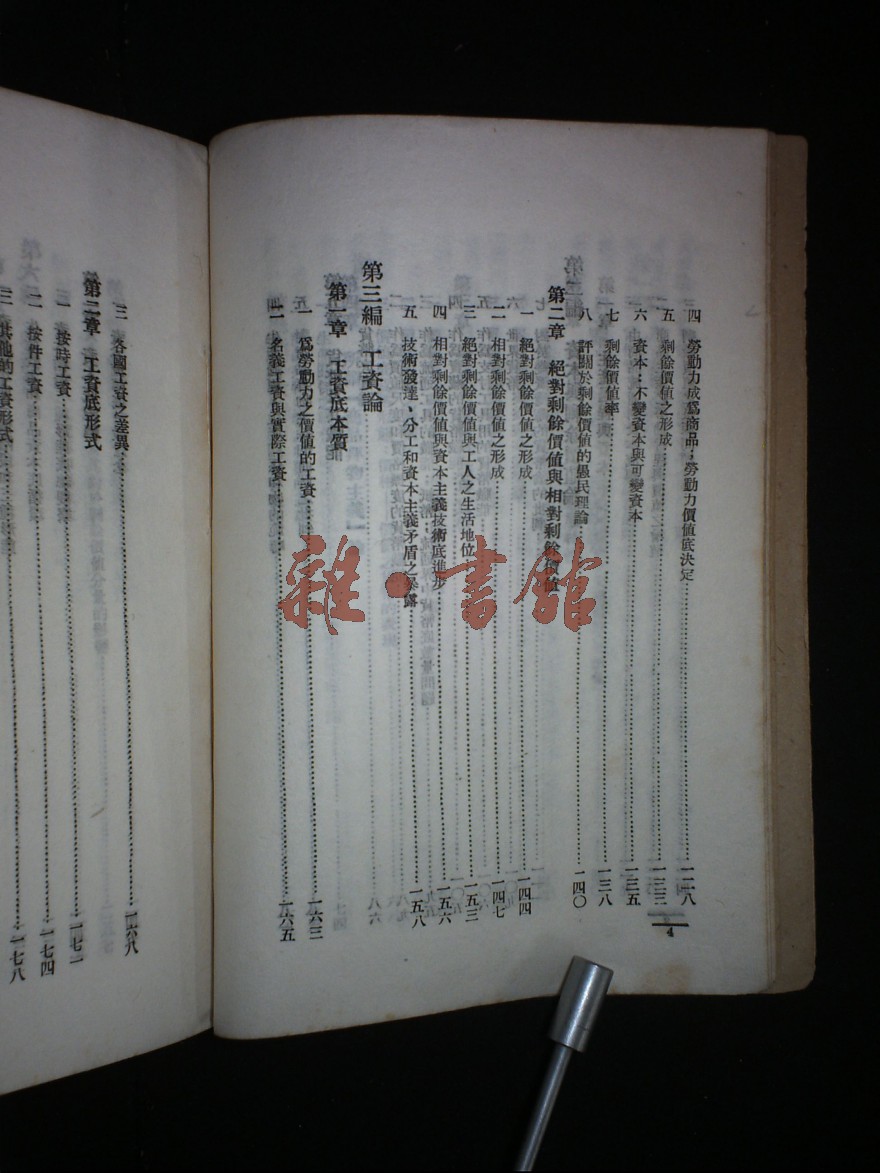 四　勞動力成爲商品；勞動力價值底決定……一二八
五　剩餘價值之形成……一三三
六　資本：不變資本與可變資本……一三五
七　剩餘價值率……一三八
八　評關於剩餘價值的愚民理論……一四〇
第二章　絕對剩餘價值與相對剩餘價值
一　絕對剩餘價值之形成……一四四
二　相對剩餘價值之形成……一四七
三　絕對剩餘價值與工人之生活地位……一五三
四　相對剩餘價值與資本主義技術底進步……一五六
五　技術發達、分工和資本主義矛盾之暴露……一五八
第三編　工資論
第一章　工資底本質
一　爲勞動力之價值的工資……一六三
二　名義工資與實際工資……一六五
4
三　各國工資之差異……一六八
第二章　工資底形式
一　按時工資……一七一
二　按件工資……一七四
三　其他的工資形式……一七八
雜·書館